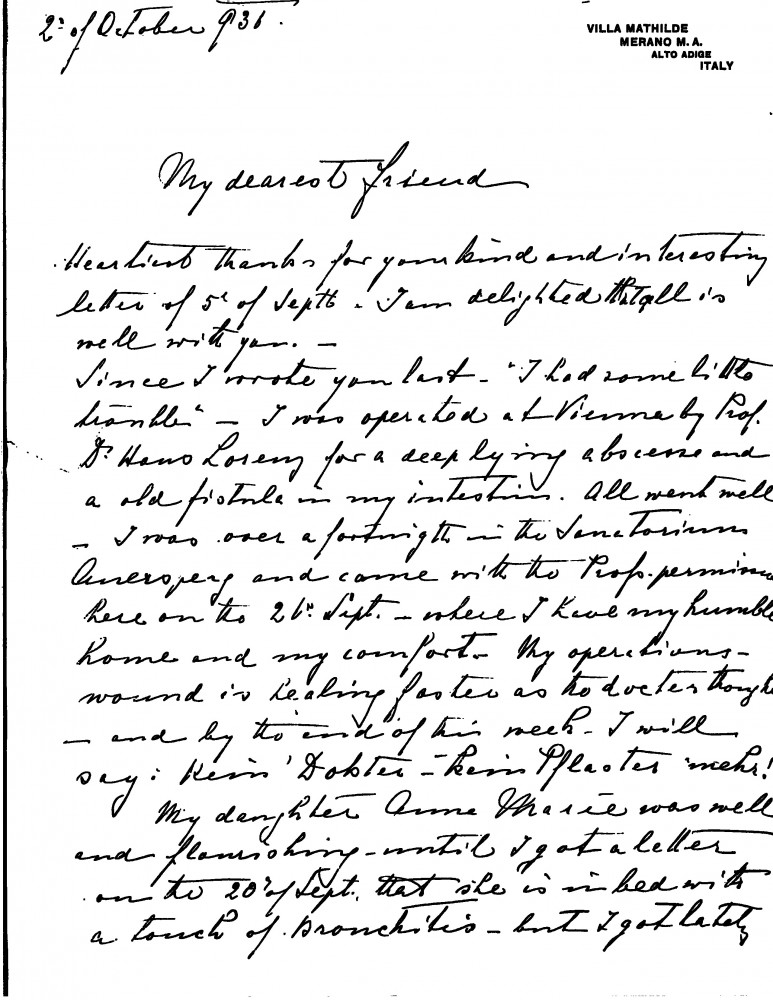 2ᵈ of October 936.
VILLA MATHILDE
MERANO M. A.
ALTO ADIGE
ITALY
My dearest friend
Heartiest thanks for your kind and interesting
letter of 5ᵗ of Septb - I am delighted that all is
well with you. -
Since I wrote you last - "I had some little
trouble" - I was operated at Vienna by Prof.
Dʳ Hans Lorenz for a deep lying abscesse and
a old fistula in my intestin. All went well
- I was over a fortnigth in the Sanatorium
Auersperg and came with the Profs. permiss
here on the 26ᵗʰ Sept. - where I have my humble
home and my comfort - My operations-
wound is healing faster as the docter thought
- and by the end of this week - I will
say: Kein' Dokter - kein Pflaster mehr!
My daughter Anne Marie was well
and flourishing - until I got a letter
on the 20ᵗ of Sept. that she is in bed with
a touch of Bronchitis - but I got lately